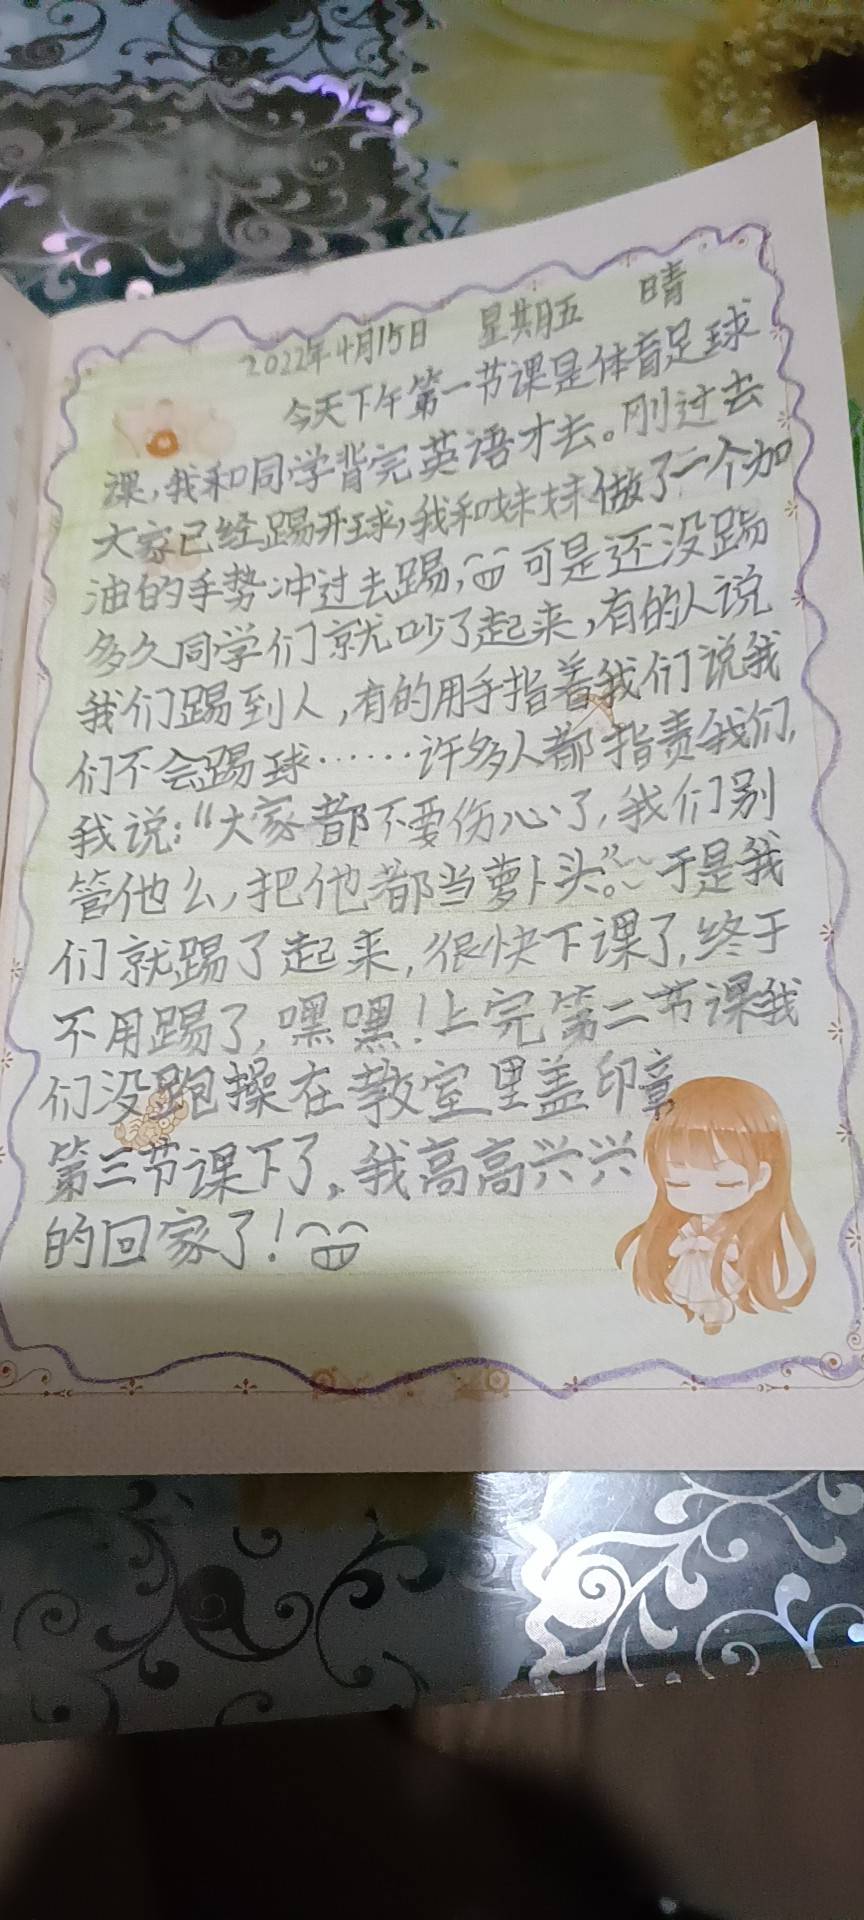 2022年4月15日 星期五 晴
今天下午第一节课是体育足球
课，我和同学背完英语才去。刚过去
大家已经踢开球，我和妹妹做了一个加
油的手势冲过去踢，可是还没踢
多久同学们就吵了起来，有的人说
我们踢到人，有的用手指着我们说我
们不会踢球……许多人都指责我们，
我说：“大家都不要伤心了，我们别
管他么，把他都当萝卜头”。于是我
们就踢了起来，很快下课了，终于
不用踢了，嘿嘿！上完第二节课我
们没跑操在教室里盖印章，
第三节课下了，我高高兴兴
的回家了！